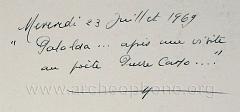 Mercredi 23 Juillet 1969
"Palalda... après une visite
au poète Pierre Camo...."
www.archeophone.org